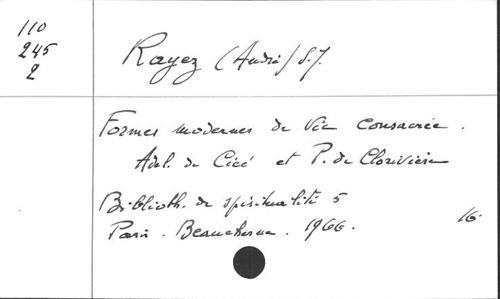 110
245
2
Rayez (André) S.J.
Formes modernes de Vie consacrée.
Adél. de Cicé et P. de Clorivière
Biblioth. de spiritualité 5
Paris. Beauchesne. 1966.
16.